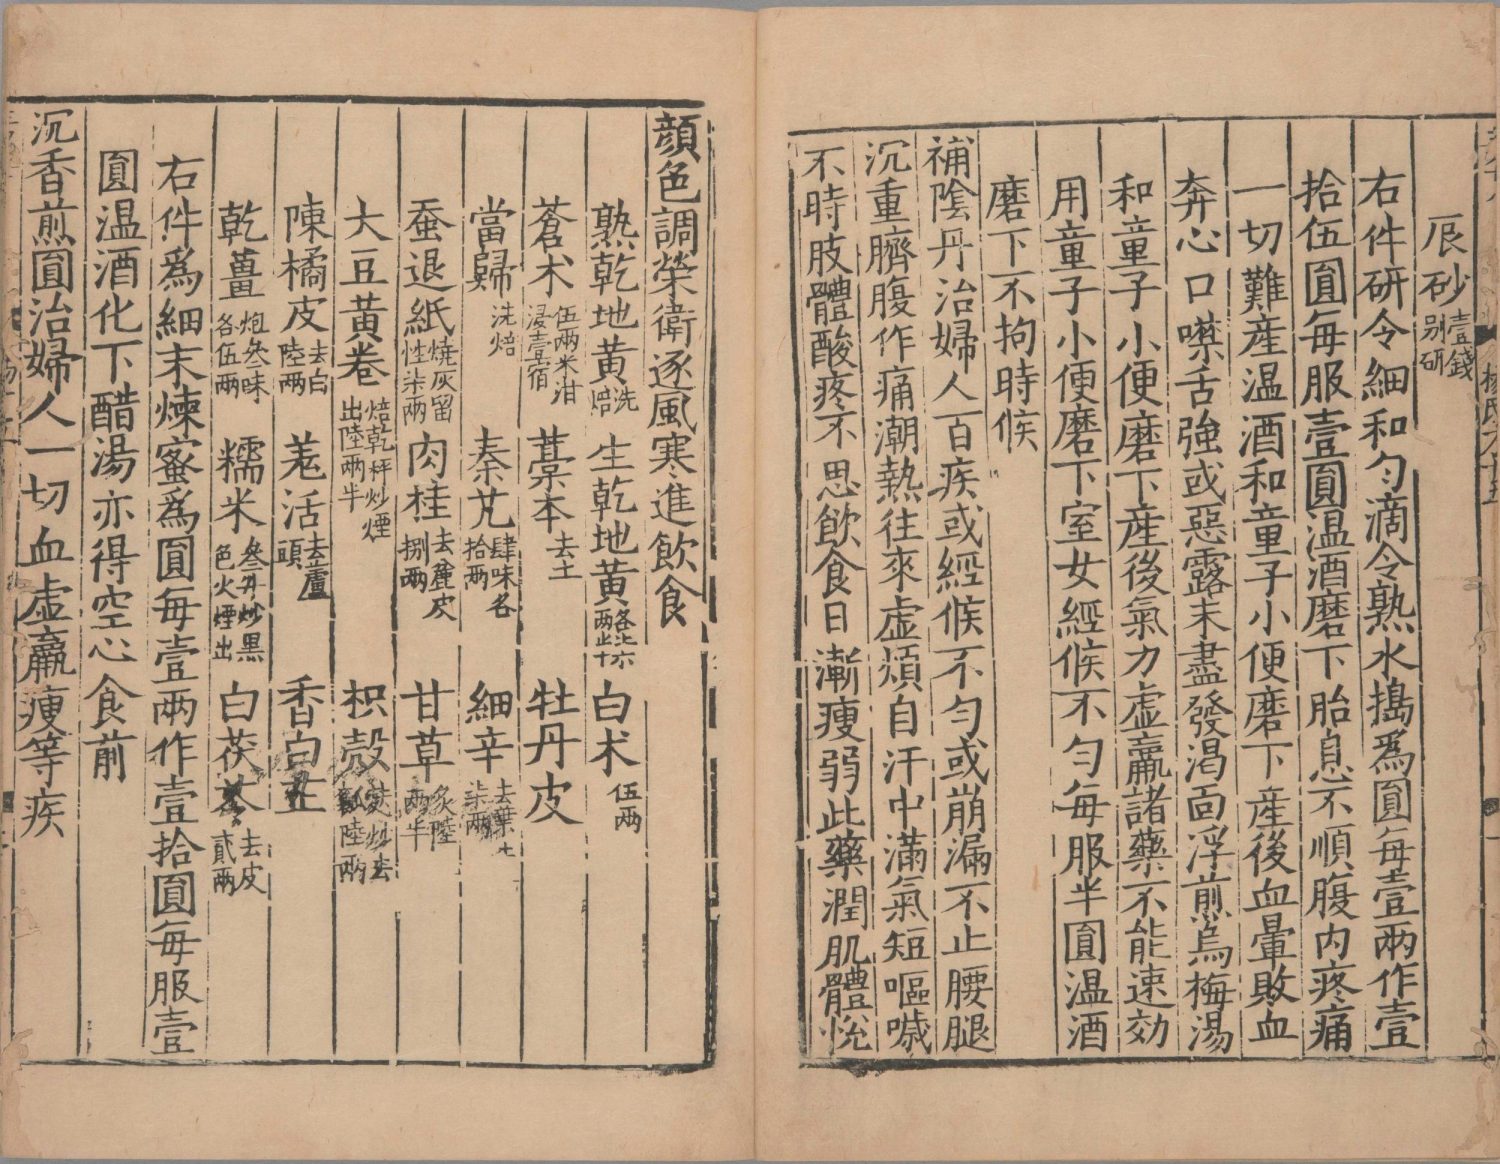 辰砂壹錢别研
右件研令細和勻滴令熟水搗爲圓每壹兩作壹
拾伍圓每服壹圓温酒磨下胎息不順腹内疼痛
一切難産温酒和童子小便磨下産後血暈敗血
奔心口噤舌強或惡露未盡發渇面浮煎烏梅湯
和童子小便磨下産後氣力虛羸諸藥不能速効
用童子小便磨下室女經候不勻每服半圓温酒
磨下不拘時候
補隂丹治婦人百疾或經候不勻或崩漏不止腰腿
沉重臍腹作痛潮熱往來虛煩自汗中滿氣短嘔噦
不時肢體酸疼不思飲食日漸瘦弱此藥潤肌體恱
顔色調榮衛逐風寒進飲食
熟乾地黄洗焙 生乾地黄 白术伍兩
蒼术伍兩米泔浸壹宿 藁本去土 牡丹皮
當歸洗焙 秦艽肆味各拾兩 細辛去葉土柒兩
蚕退紙燒灰留性柒兩 肉桂去麄皮捌兩 甘草炙陸兩半
大豆黄卷焙乾秤炒煙出陸兩半 枳殻麸炒去瓤陸兩
陳橘皮去白陸兩 羗活去蘆頭 香白芷
乾薑炮叁味各伍兩 糯米叁升炒黒色火煙出 白茯苓去皮貳兩
右件爲細末煉蜜爲圓每壹兩作壹拾圓每服壹
圓温酒化下醋湯亦得空心食前
沉香煎圓治婦人一切血虛羸瘦等疾